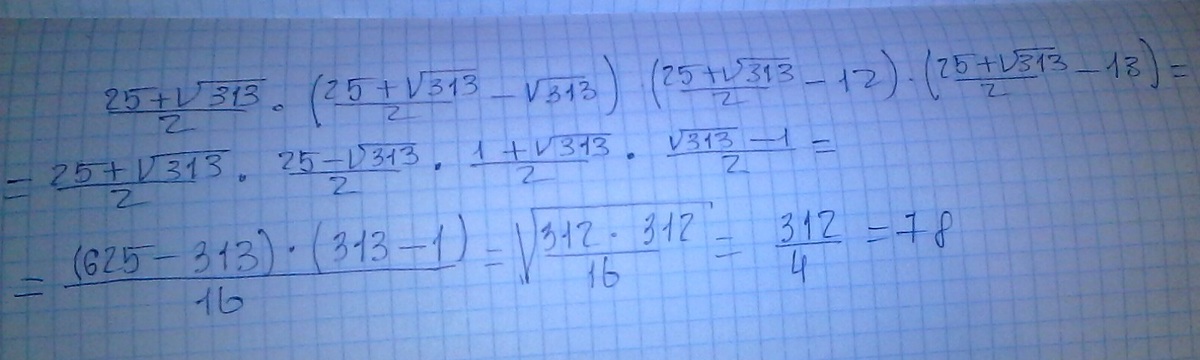 (25+√313)/2 · ((25+√313)/2 − √313) ((25+√313)/2 − 12) · ((25+√313)/2 − 13) =
= (25+√313)/2 · (25−√313)/2 · (1+√313)/2 · (√313−1)/2 =
= ((625−313)·(313−1))/16 = √((312·312)/16) = 312/4 = 78